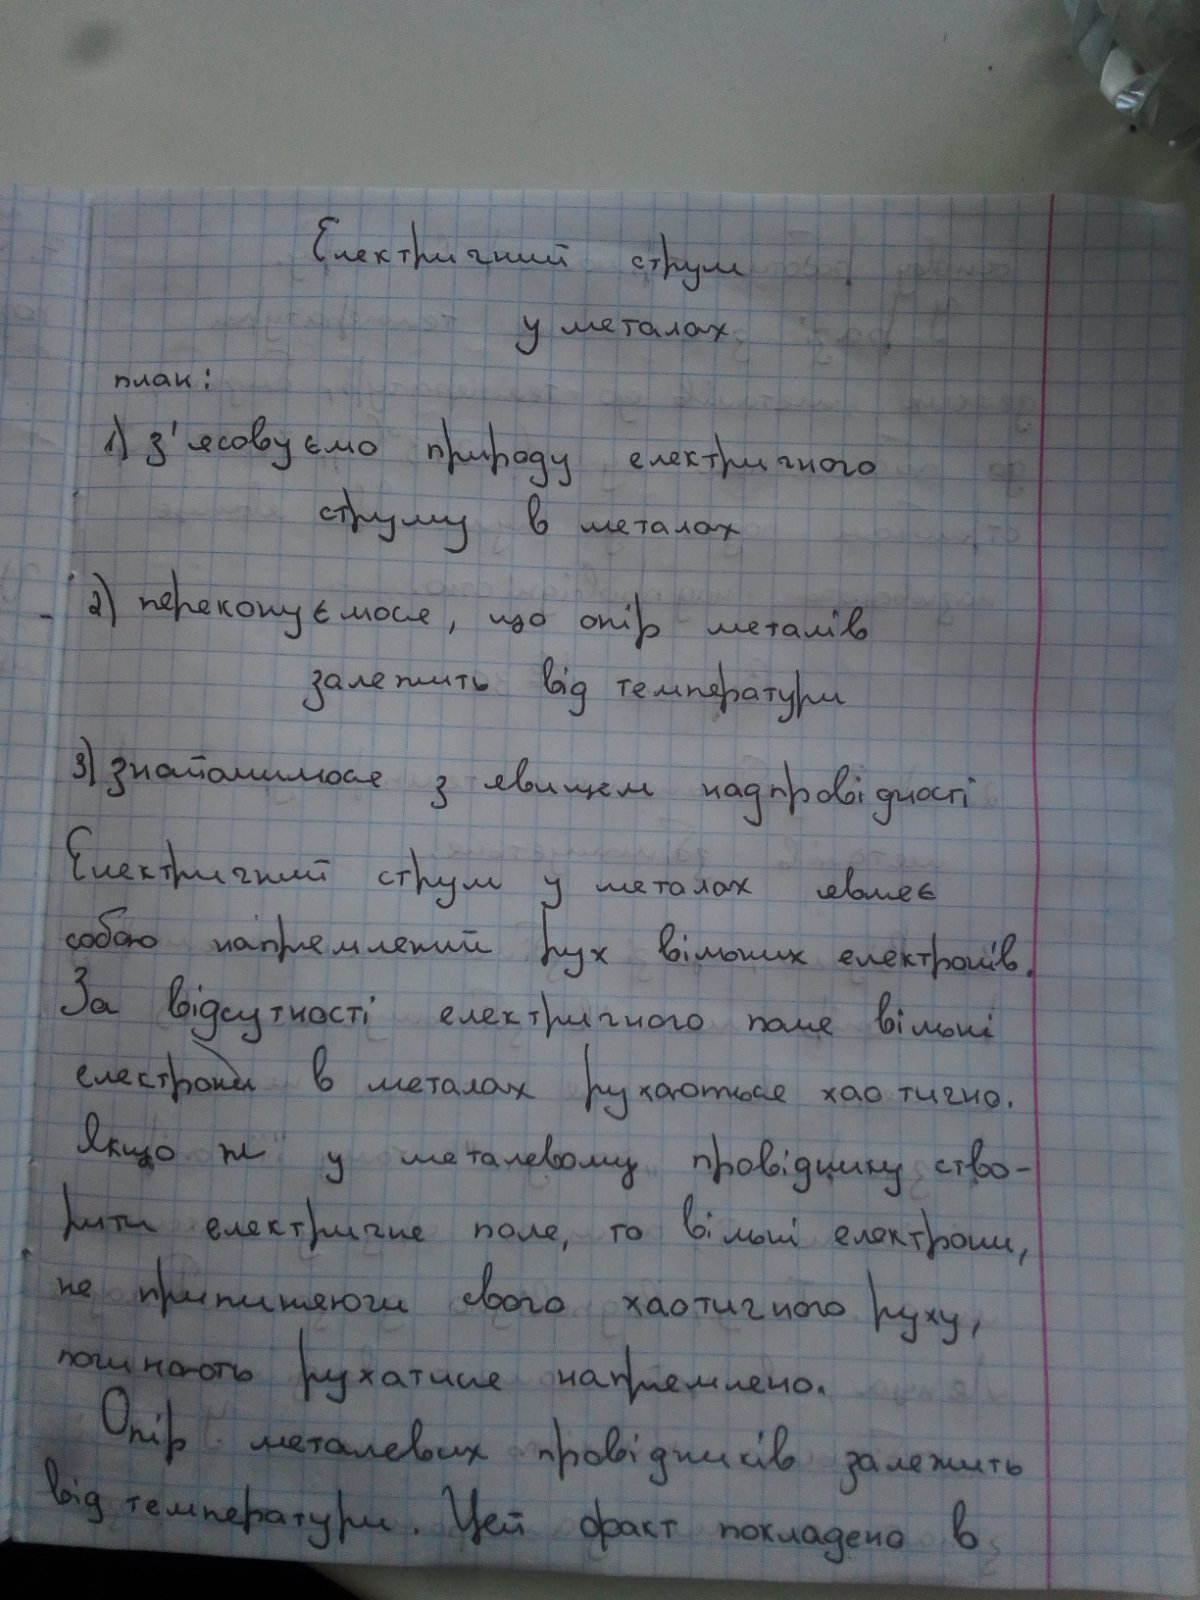 Електричний струм
у металах
план:
1) з'ясовуємо природу електричного
струму в металах
2) переконуємося, що опір металів
залежить від температури
3) знайомимося з явищем надпровідності
Електричний струм у металах являє
собою напрямлений рух вільних електронів.
За відсутності електричного поля вільні
електрони в металах рухаються хаотично.
Якщо ж у металевому провіднику ство-
рити електричне поле, то вільні електрони,
не припиняючи свого хаотичного руху,
починають рухатися напрямлено.
Опір металевих провідників залежить
від температури. Цей факт покладено в